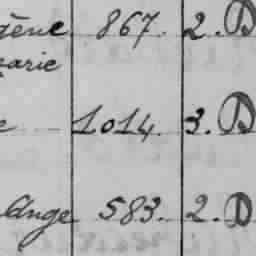 gène 867. 2. D
marie
e 1014. 3. D
Ange 583. 2. D